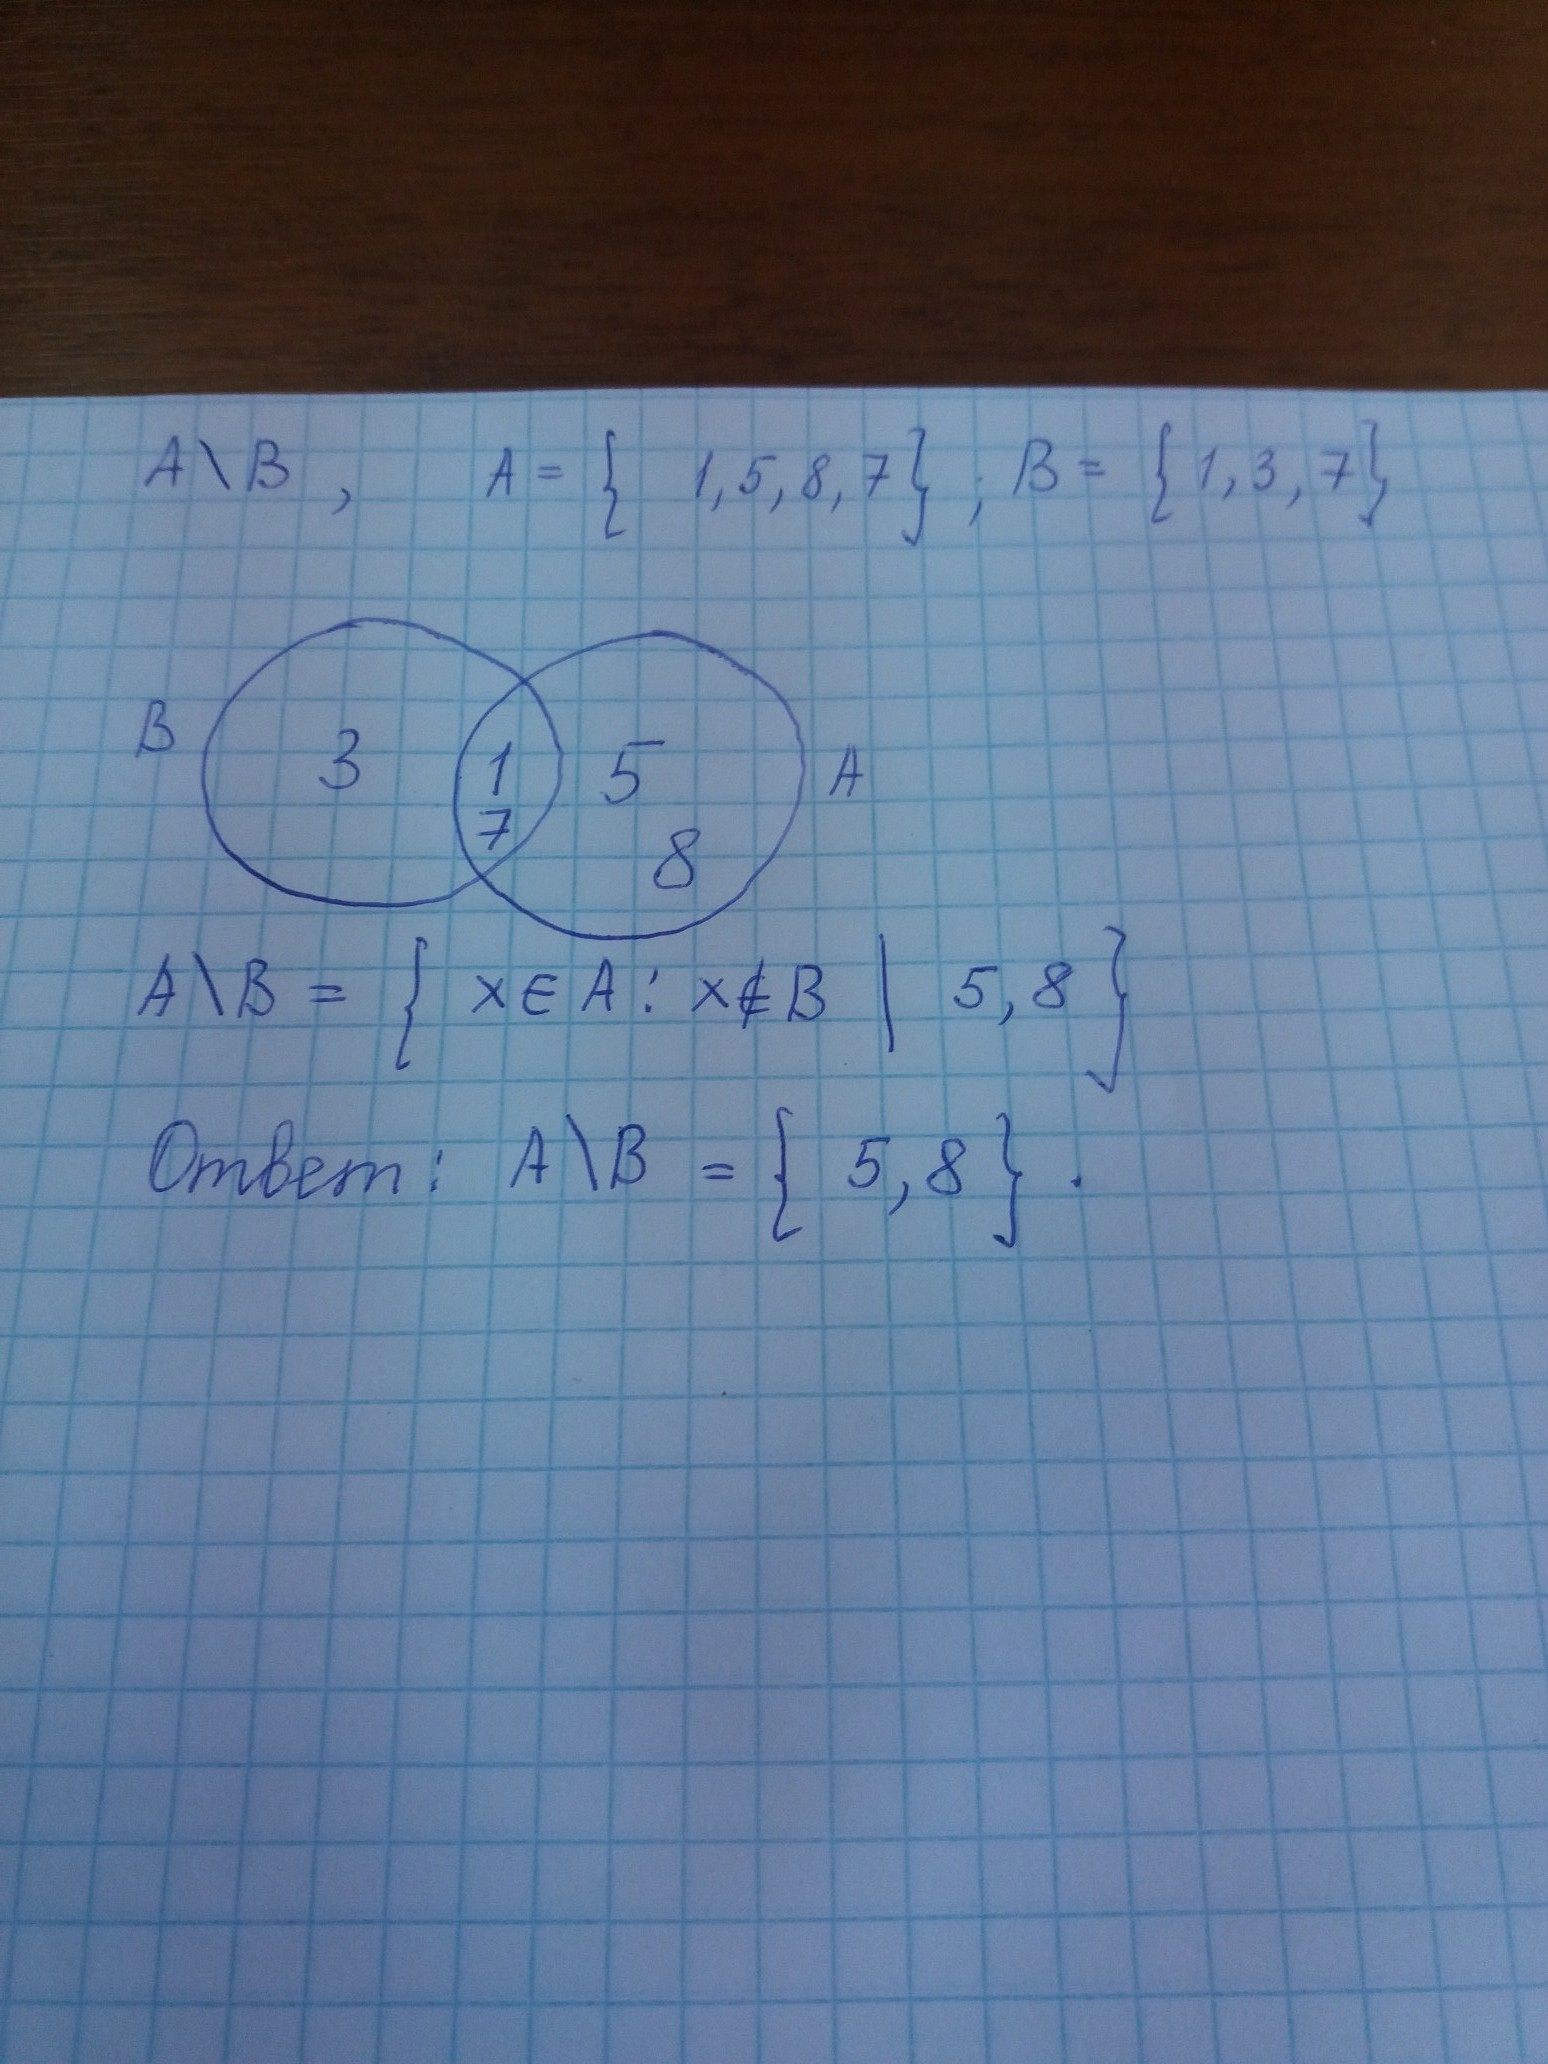 A\B, A = { 1, 5, 8, 7} ; B = {1, 3, 7}
B 3 1 5 A
7
8
A\B = { x∈A : x∉B | 5, 8 }
Ответ: A\B = { 5, 8 } .